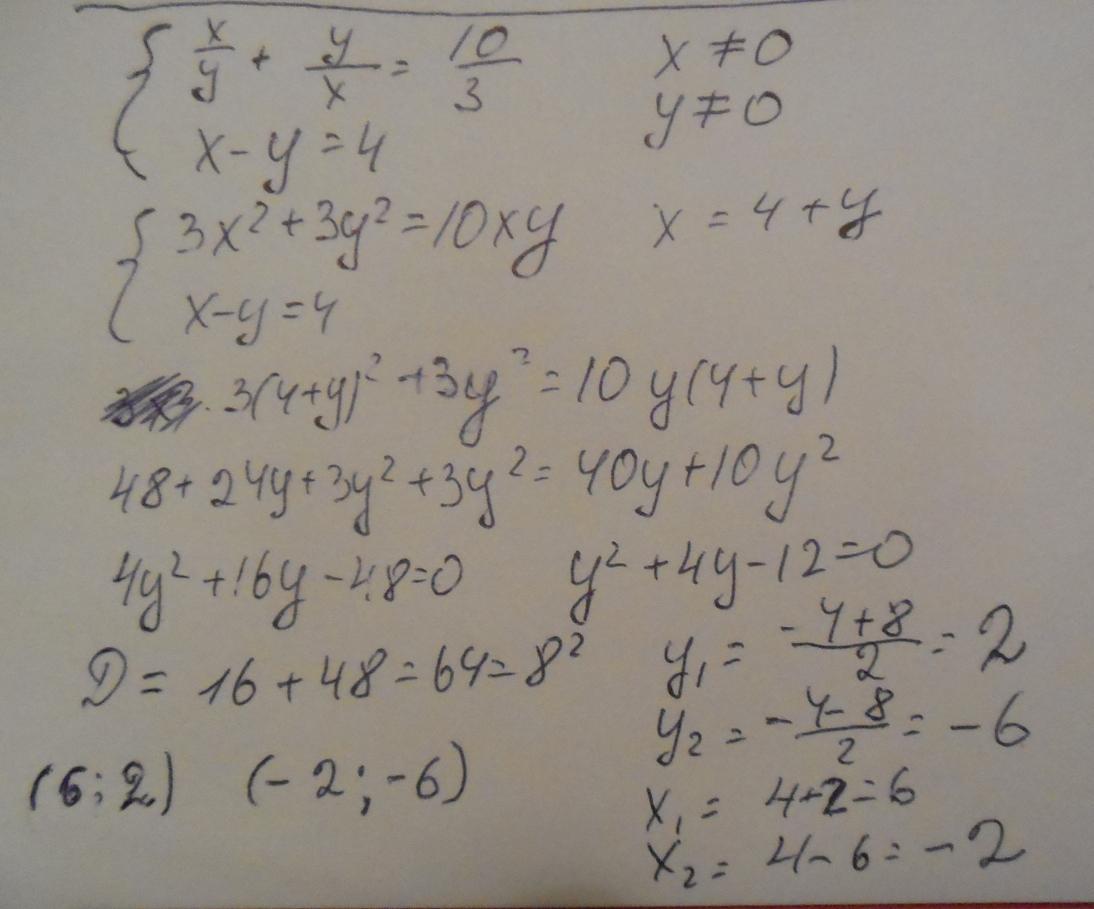 { x/y + y/x = 10/3    x ≠ 0
x - y = 4    y ≠ 0
{ 3x² + 3y² = 10xy    x = 4 + y
x - y = 4
3(4+y)² + 3y² = 10y(4+y)
48 + 24y + 3y² + 3y² = 40y + 10y²
4y² + 16y - 48 = 0    y² + 4y - 12 = 0
D = 16 + 48 = 64 = 8²    y₁ = (-4+8)/2 = 2
y₂ = (-4-8)/2 = -6
(6; 2)    (-2; -6)    x₁ = 4+2 = 6
x₂ = 4 - 6 = -2